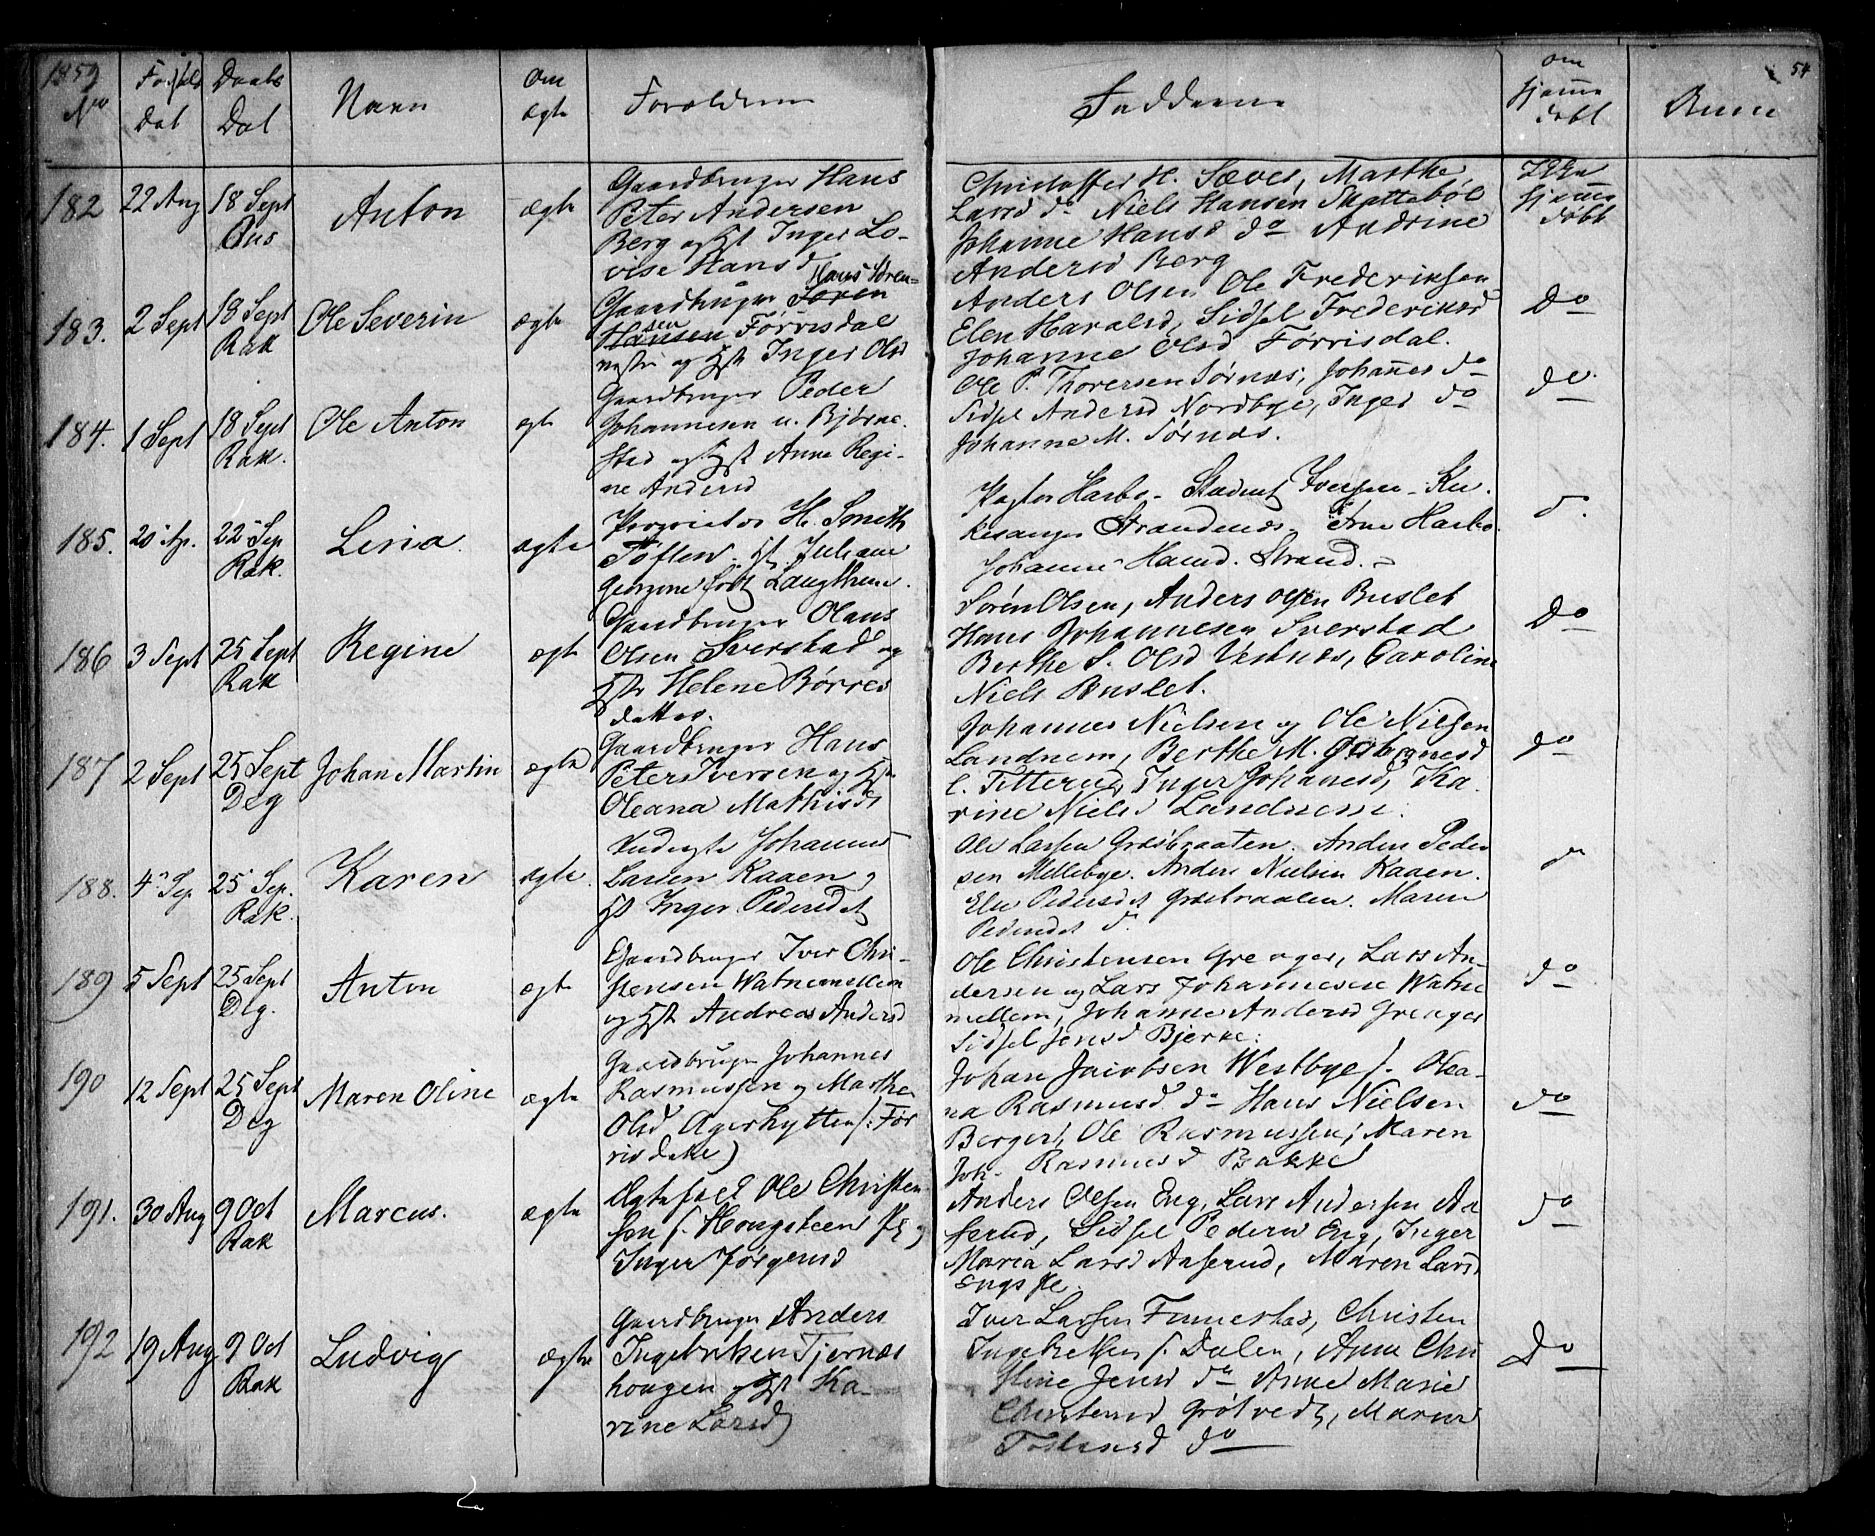 1859 54
No Fødsels Dat Daabs Dat Navn Om ægte Forældrene Faddrene om hjemme døbt Anm
182 22 Aug 18 Sept Bus Anton ægte
Gaardbruger Hans
Peter Andersen
Berg og H Inger Lo-
vise Hansd
Christoffer H. Sæves, Marthe
Larsd do Niels Hansen Skattebøl
Johanne Hansd do Andrine
Andersd Berg
Ikke hjemme døbt
183. 2 Sept 18 Sept Rak Ole Severin ægte
Hans Søren-
Gaardbruger Søren
sen
Hansen Førrisdal
nestre og Hst Inger Olsd
Anders Olsen Ole Frederiksen
Elen Haralsd, Sidsel Frederiksd
Johanne Olsd Førrisdal.
Do
184. 1 Sept 18 Sept Rak. Ole Anton egte
Gaardbruger Peder
Johannesen u. Bjørne-
stad og Hst Anne Regi-
ne Andersd
Ole P. Thoresen Sørnæs, Johannes do
Sidsel Andersd Nordbye, Inger do
Johanne M. Sørnæs.
do
185. 20 Ap. 22 Sep Rak. Lina. ægte
Proprietær H. Smith
Toften. Hst Juliane
Georgine født Langthun.
Pastor Harbo - Student Iversen - Kir-
kesanger Strandenæs, Frue Harbo.
Johanne Hansd. Strand.
d.
186 3 Sept 25 Sept Rak Regine ægte
Gaardbruger Olaus
Olsen Sverstad og
Hst Helene Børres
datter.
Søren Olsen, Anders Olsen Buslet
Hans Johannesen Sverstad
Berthe S. Olsd Vestnæs, Caroline
Niels Buslet.
Do
187 2 Sept 25 Sept Deg Johan Martin ægte
Gaardbruger Hans
Peter Iversen og Hst
Oleana Mathisd
Johannes Nielsen og Ole Nielsen
Landnem, Berthe M. Johannesd
l. Titterud, Inger Johannesd, Ka-
rine Nielsd Landnem.
do
188. 4 Sep 25 Sep. Rak. Karen ægte.
Inderste Johannes
Larsen Kaaen og
Hst Inger Pedersdt
Ole Larsen Græsbraaten. Anders Peder
sen Mellebye. Anders Nielsen Kaaen.
Else Pedersdt Græsbraaten. Maren
Pedersdt d.
do
189 5 Sept 25 Sept Deg. Anton ægte
Gaardbruger Iver Chri-
stensen Watnemellem
og Hst Andrea Andersd
Ole Christensen Greager, Lars An-
dersen og Lars Johannesen Watne
mellem, Johanne Andersd Greager
Sidsel Jensd Bjerke.
do
190 12 Sept 25 Sept Deg Maren Oline ægte
Gaardbruger Johannes
Rasmussen og Marthe
Olsd Agerhytten (: Før
risdale)
Johan Jacobsen Westbye f. Olea-
na Rasmusd do Hans Nielsen
Berger, Ole Rasmussen, Maren
Joh- Rasmusd Bakke
do
191. 30 Aug 9 Oct Rak Marcus. ægte
Ægtefolk Ole Christen-
sen f. Hougsteen Pe og
Inger Jørgensd
Anders Olsen Eng, Lars Andersen Aa
serud, Sidsel Pedersd Eng, Inger
Maria Larsd Aaserud, Maren Larsd
Engs Pe.
do
192 19 Aug 9 Oct Rak Ludvig ægte
Gaardbruger Anders
Ingebretsen Tjernæs
hougen og Hst Ka-
rine Larsd
Iver Larsen Finnestad, Christen
Ingebretsen f. Dalen, Anne Chri
stine Jensd do Anne Marie
Christensd Grøtvedt, Maren
Torstensd do
Do